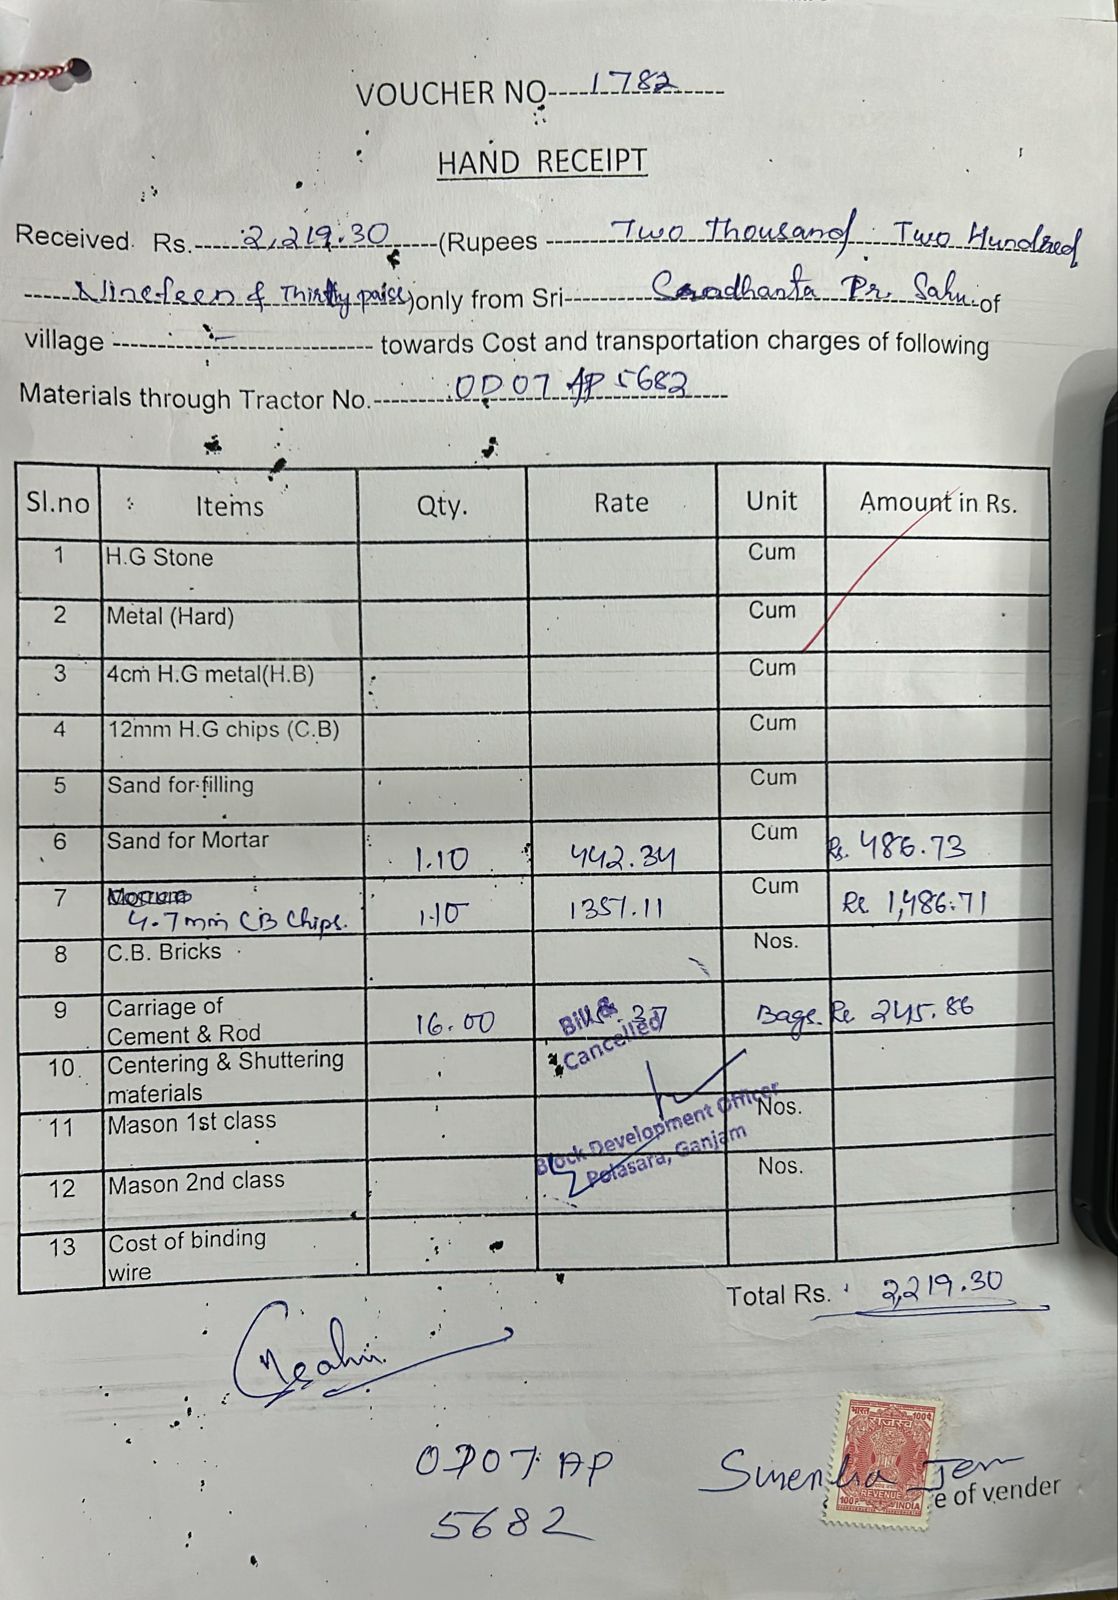 VOUCHER NO----1782-----
HAND RECEIPT
Received Rs.-----2,219.30-----(Rupees -----Two Thousand Two Hundred
-----Nineteen & Thirty paise)only from Sri----- Pr. Sahu-of
village ----- towards Cost and transportation charges of following
Materials through Tractor No.-----OD07 AP 5682-----
Sl.no Items Qty. Rate Unit Amount in Rs.
1 H.G Stone Cum
2 Metal (Hard) Cum
3 4cm H.G metal(H.B) Cum
4 12mm H.G chips (C.B) Cum
5 Sand for filling Cum
6 Sand for Mortar 1.10 442.34 Cum Rs. 486.73
7 Morrum Cum
4.7mm CB Chips. 1.10 1351.11 Rs 1,486.71
8 C.B. Bricks Nos.
9 Carriage of
Cement & Rod 16.00 Bags. Rs 245.86
Bill &
Cancelled
10. Centering & Shuttering
materials
11 Mason 1st class Nos.
Block Development Officer
Polasara, Ganjam
12 Mason 2nd class Nos.
13 Cost of binding
wire
Total Rs. 2,219.30
OD07 AP
5682
भारत 100
REVENUE
100P INDIA
e of vender